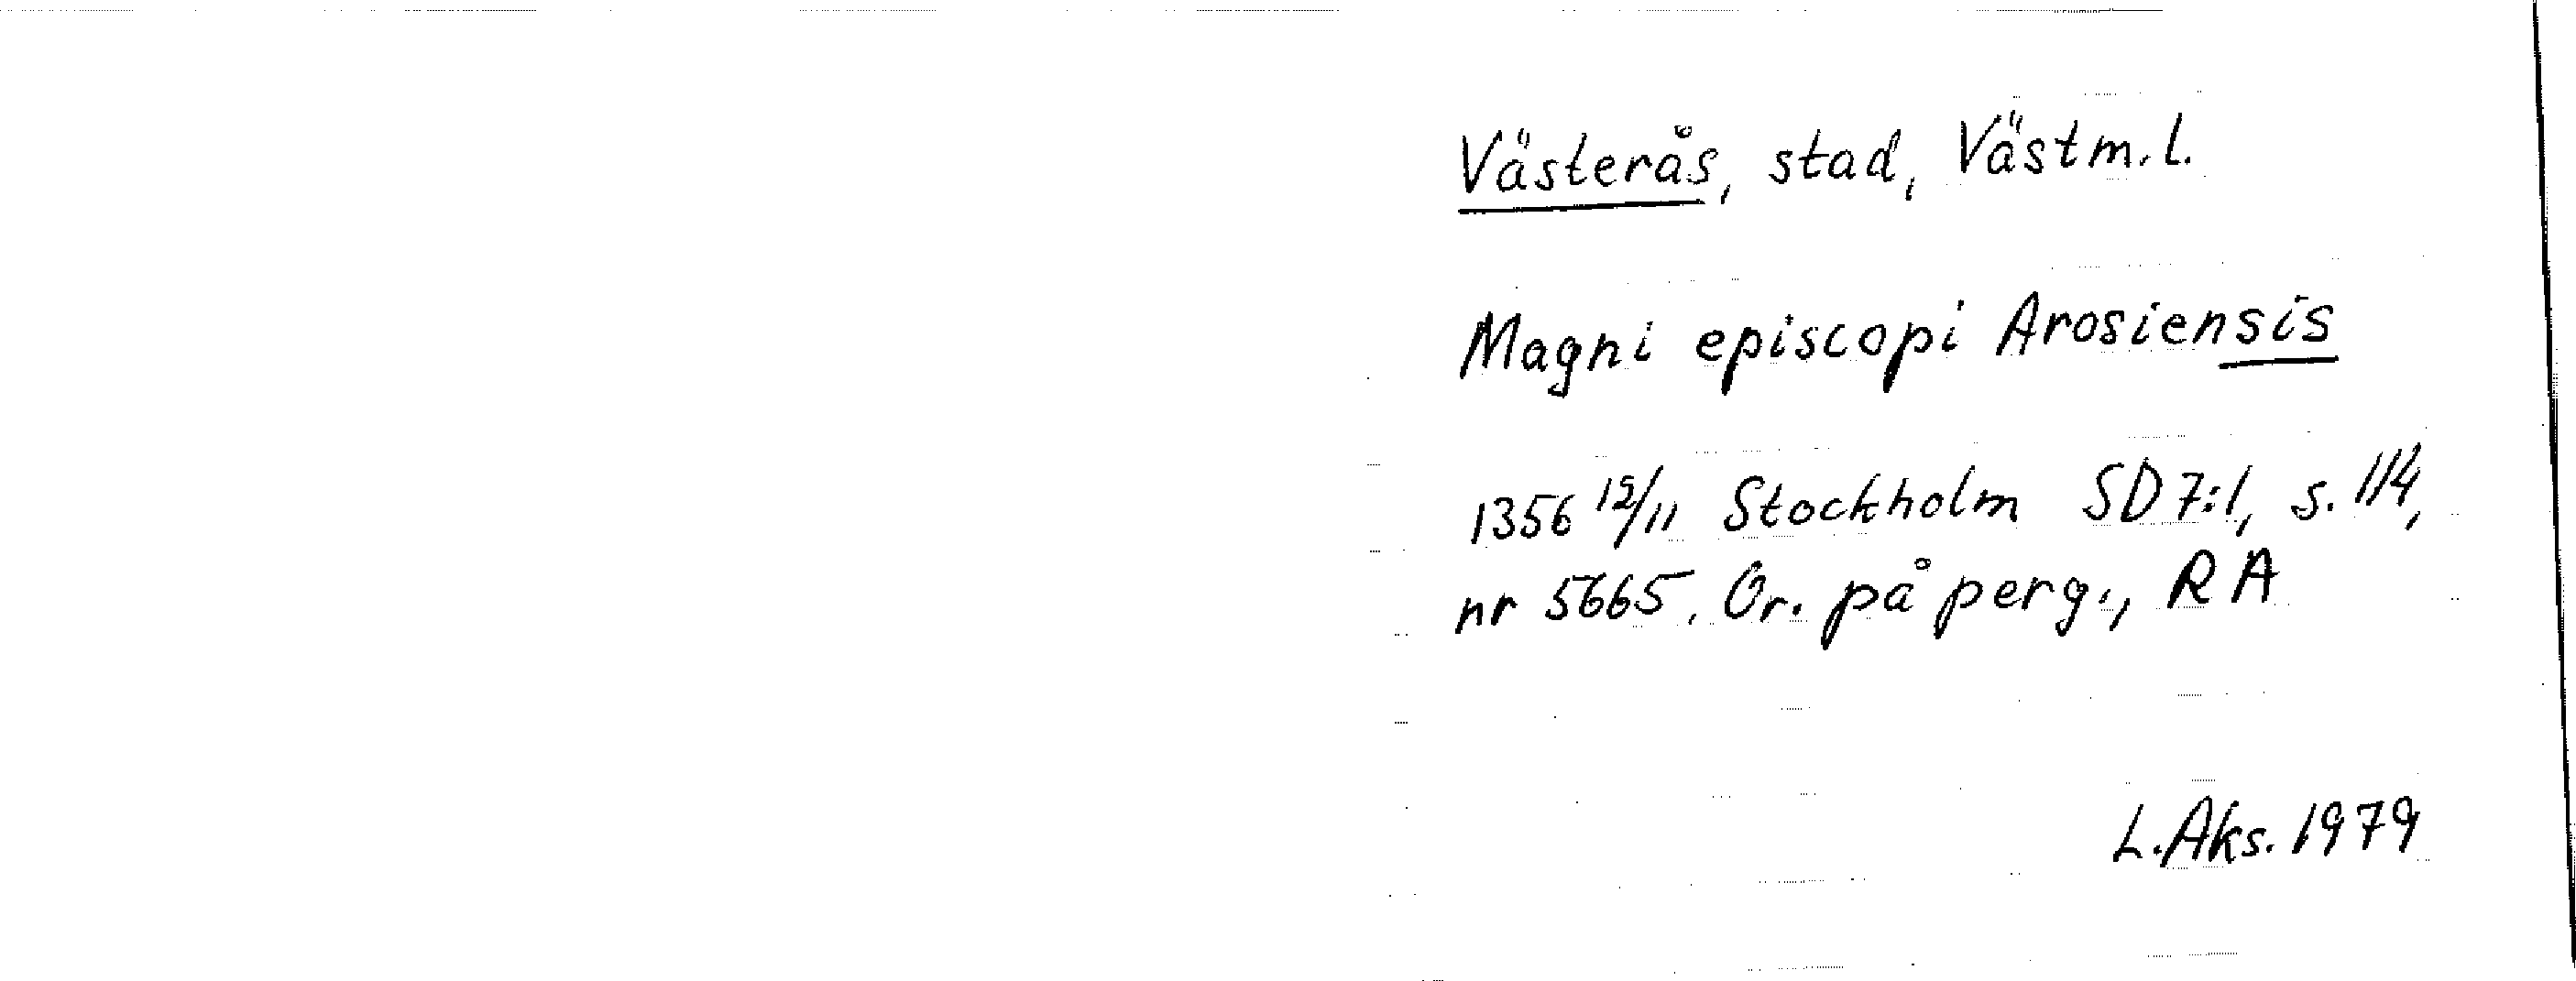 Västerås, stad, Västm. l.
Magni episcopi Arosiensis
1356 15/11 Stockholm SD 7:1, s. 114,
nr 5665. Or. på perg., RA
L. Aks. 1979